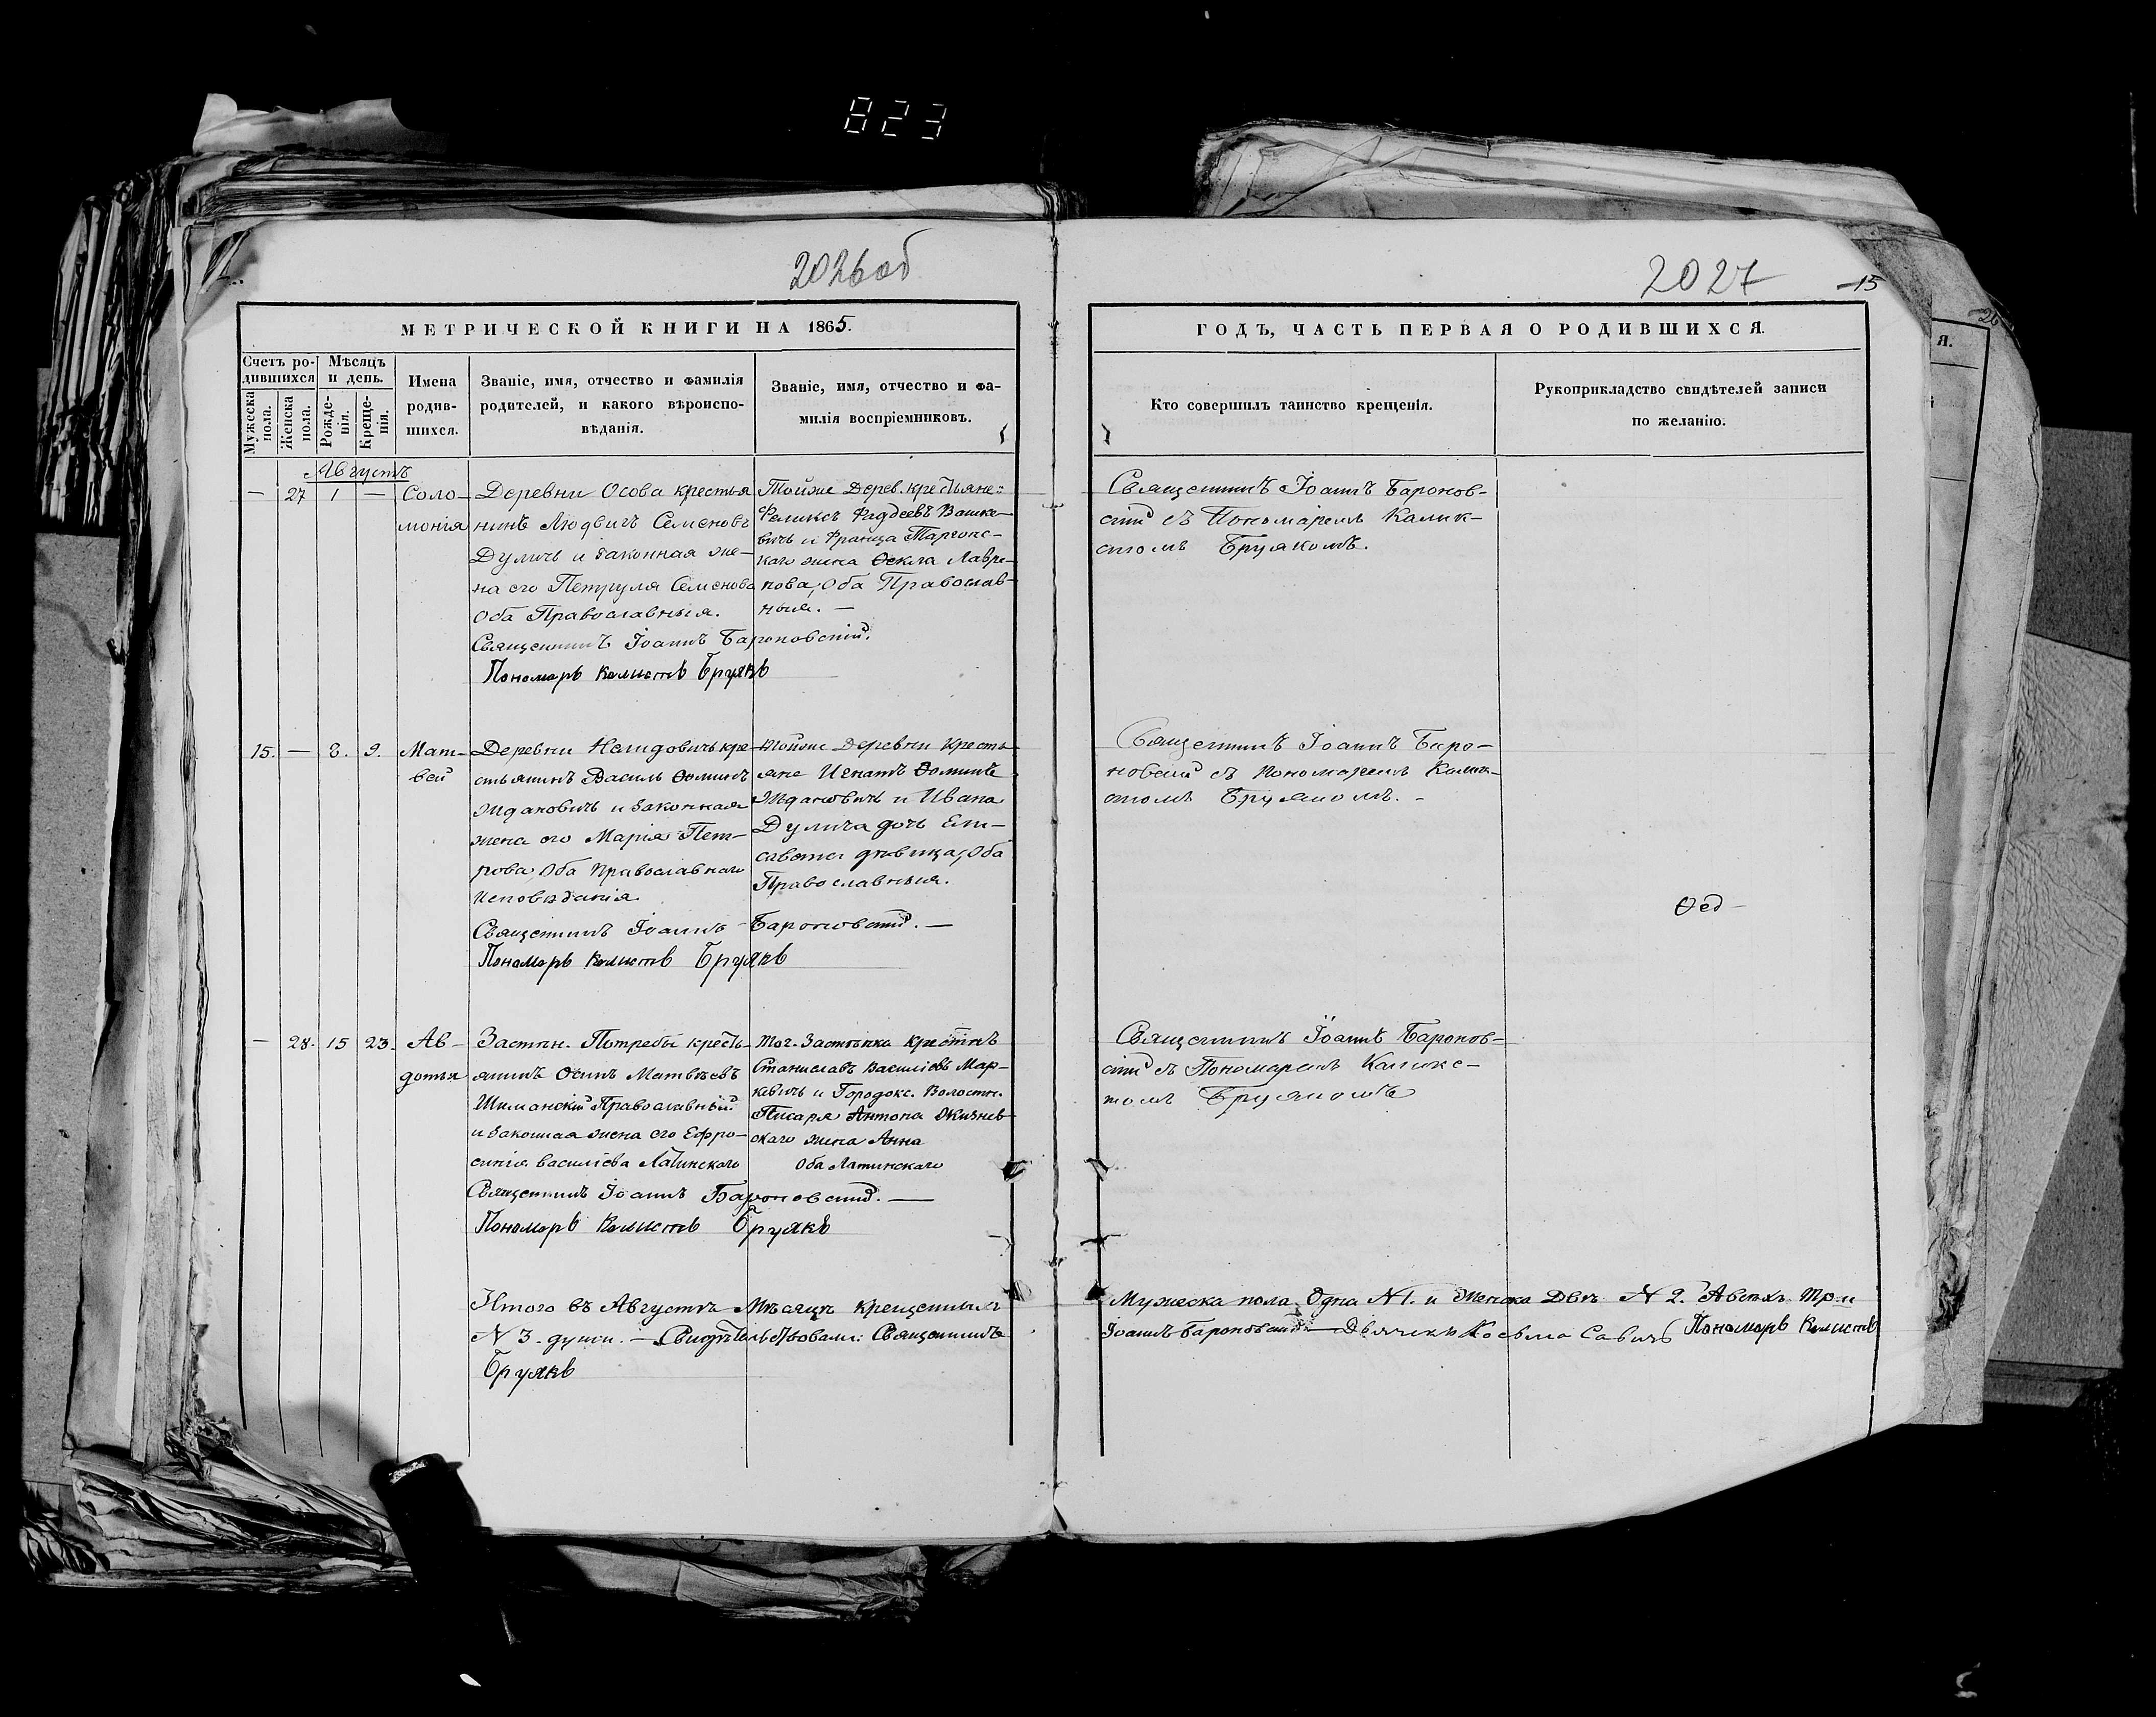 823
2026об
2027
15
МЕТРИЧЕСКОЙ КНИГИ НА 1865.
ГОДЪ, ЧАСТЬ ПЕРВАЯ О РОДИВШИХСЯ.
Я.
Счетъ ро-
дившихся
Мѣсяцъ
и день.
Мужеска
пола.
Женска
пола.
Рожде-
нія.
Креще-
нія.
Имена
родив-
шихся.
Званіе, имя, отчество и фамилія
родителей, и какого вѣроиспо-
вѣданія.
Званіе, имя, отчество и фа-
милія воспріемниковъ.
Кто совершилъ таинство крещенія.
Рукоприкладство свидѣтелей записи
по желанію.
Августъ
— 27 1 —
Соло-
монія
Деревни Осова крестья
нинъ Людвигъ Семеновъ
Дуличъ и законная же-
на его Петруля Семенова
Оба Православныя.
Священникъ Іоаннъ Бароновскій.
Пономарь Калистъ Брyякъ
Тойже Дерев. крестьяне:
Феликсъ Фаддеевъ Вашке-
вичъ и Франца Таргонс-
каго жена Ѳекла Лавре-
нова, Оба Православ-
ныя. —
Священникъ Іоаннъ Баронов-
скій съ Пономаремъ Калик-
стомъ Бруякомъ.
15. — 8. 9.
Мат-
вей
Деревни Нелидовичь кре-
стьянинъ Василь Ѳоминъ
Ждановичъ и законная
жена его Марія Пет-
рова, Оба Православнаго
Исповѣданія
Священникъ Іоаннъ Бароновскій. —
Пономарь Калистъ Бруякъ
Тойже Деревни Кресть-
яне Игнатъ Ѳоминъ
Ждановичъ и Ивана
Дулича дочь Ели-
савета дѣвица, Оба
Православныя.
Священникъ Іоаннъ Баро-
новскій съ Пономаремъ Калик-
стомъ Бруякомъ. -
Ѳед-
— 28. 15 23.
Ав-
дотья
Застѣн. Потребы кресть-
янинъ Осипъ Матвѣевъ
Шиманскій Православный
и законная жена его Ефро-
синія Васильева Латинскаго
Священникъ Іоаннъ Бароновскій. —
Пономарь Калистъ Бруякъ
Тог. Застѣнка
Станиславъ Васильевъ Мар-
кевичъ и Городокс. Волостн.
Писаря Антона
скаго жена Анна
Оба Латинскаго
Священникъ Іоаннъ Баронов-
скій съ Пономаремъ Каликс-
томъ Бруякомъ
Итого въ Августѣ Мѣсяцѣ крещенныхъ Мужеска пола Одна N 1. и Женска Двѣ N 2. А всѣхъ три
N 3. души. — Свидѣтельствовали: Священникъ Іоаннъ Бароновскій — Дьячекъ Косьма Савичъ Пономарь Калистъ
Бруякъ